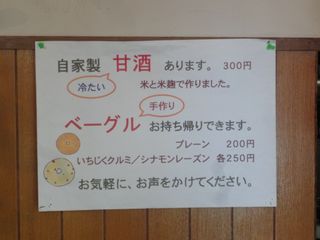 自家製 甘酒 あります。 300円
冷たい
米と米麹で作りました。
手作り
ベーグル お持ち帰りできます。
プレーン 200円
いちじくクルミ／シナモンレーズン 各250円
お気軽に、お声をかけてください。